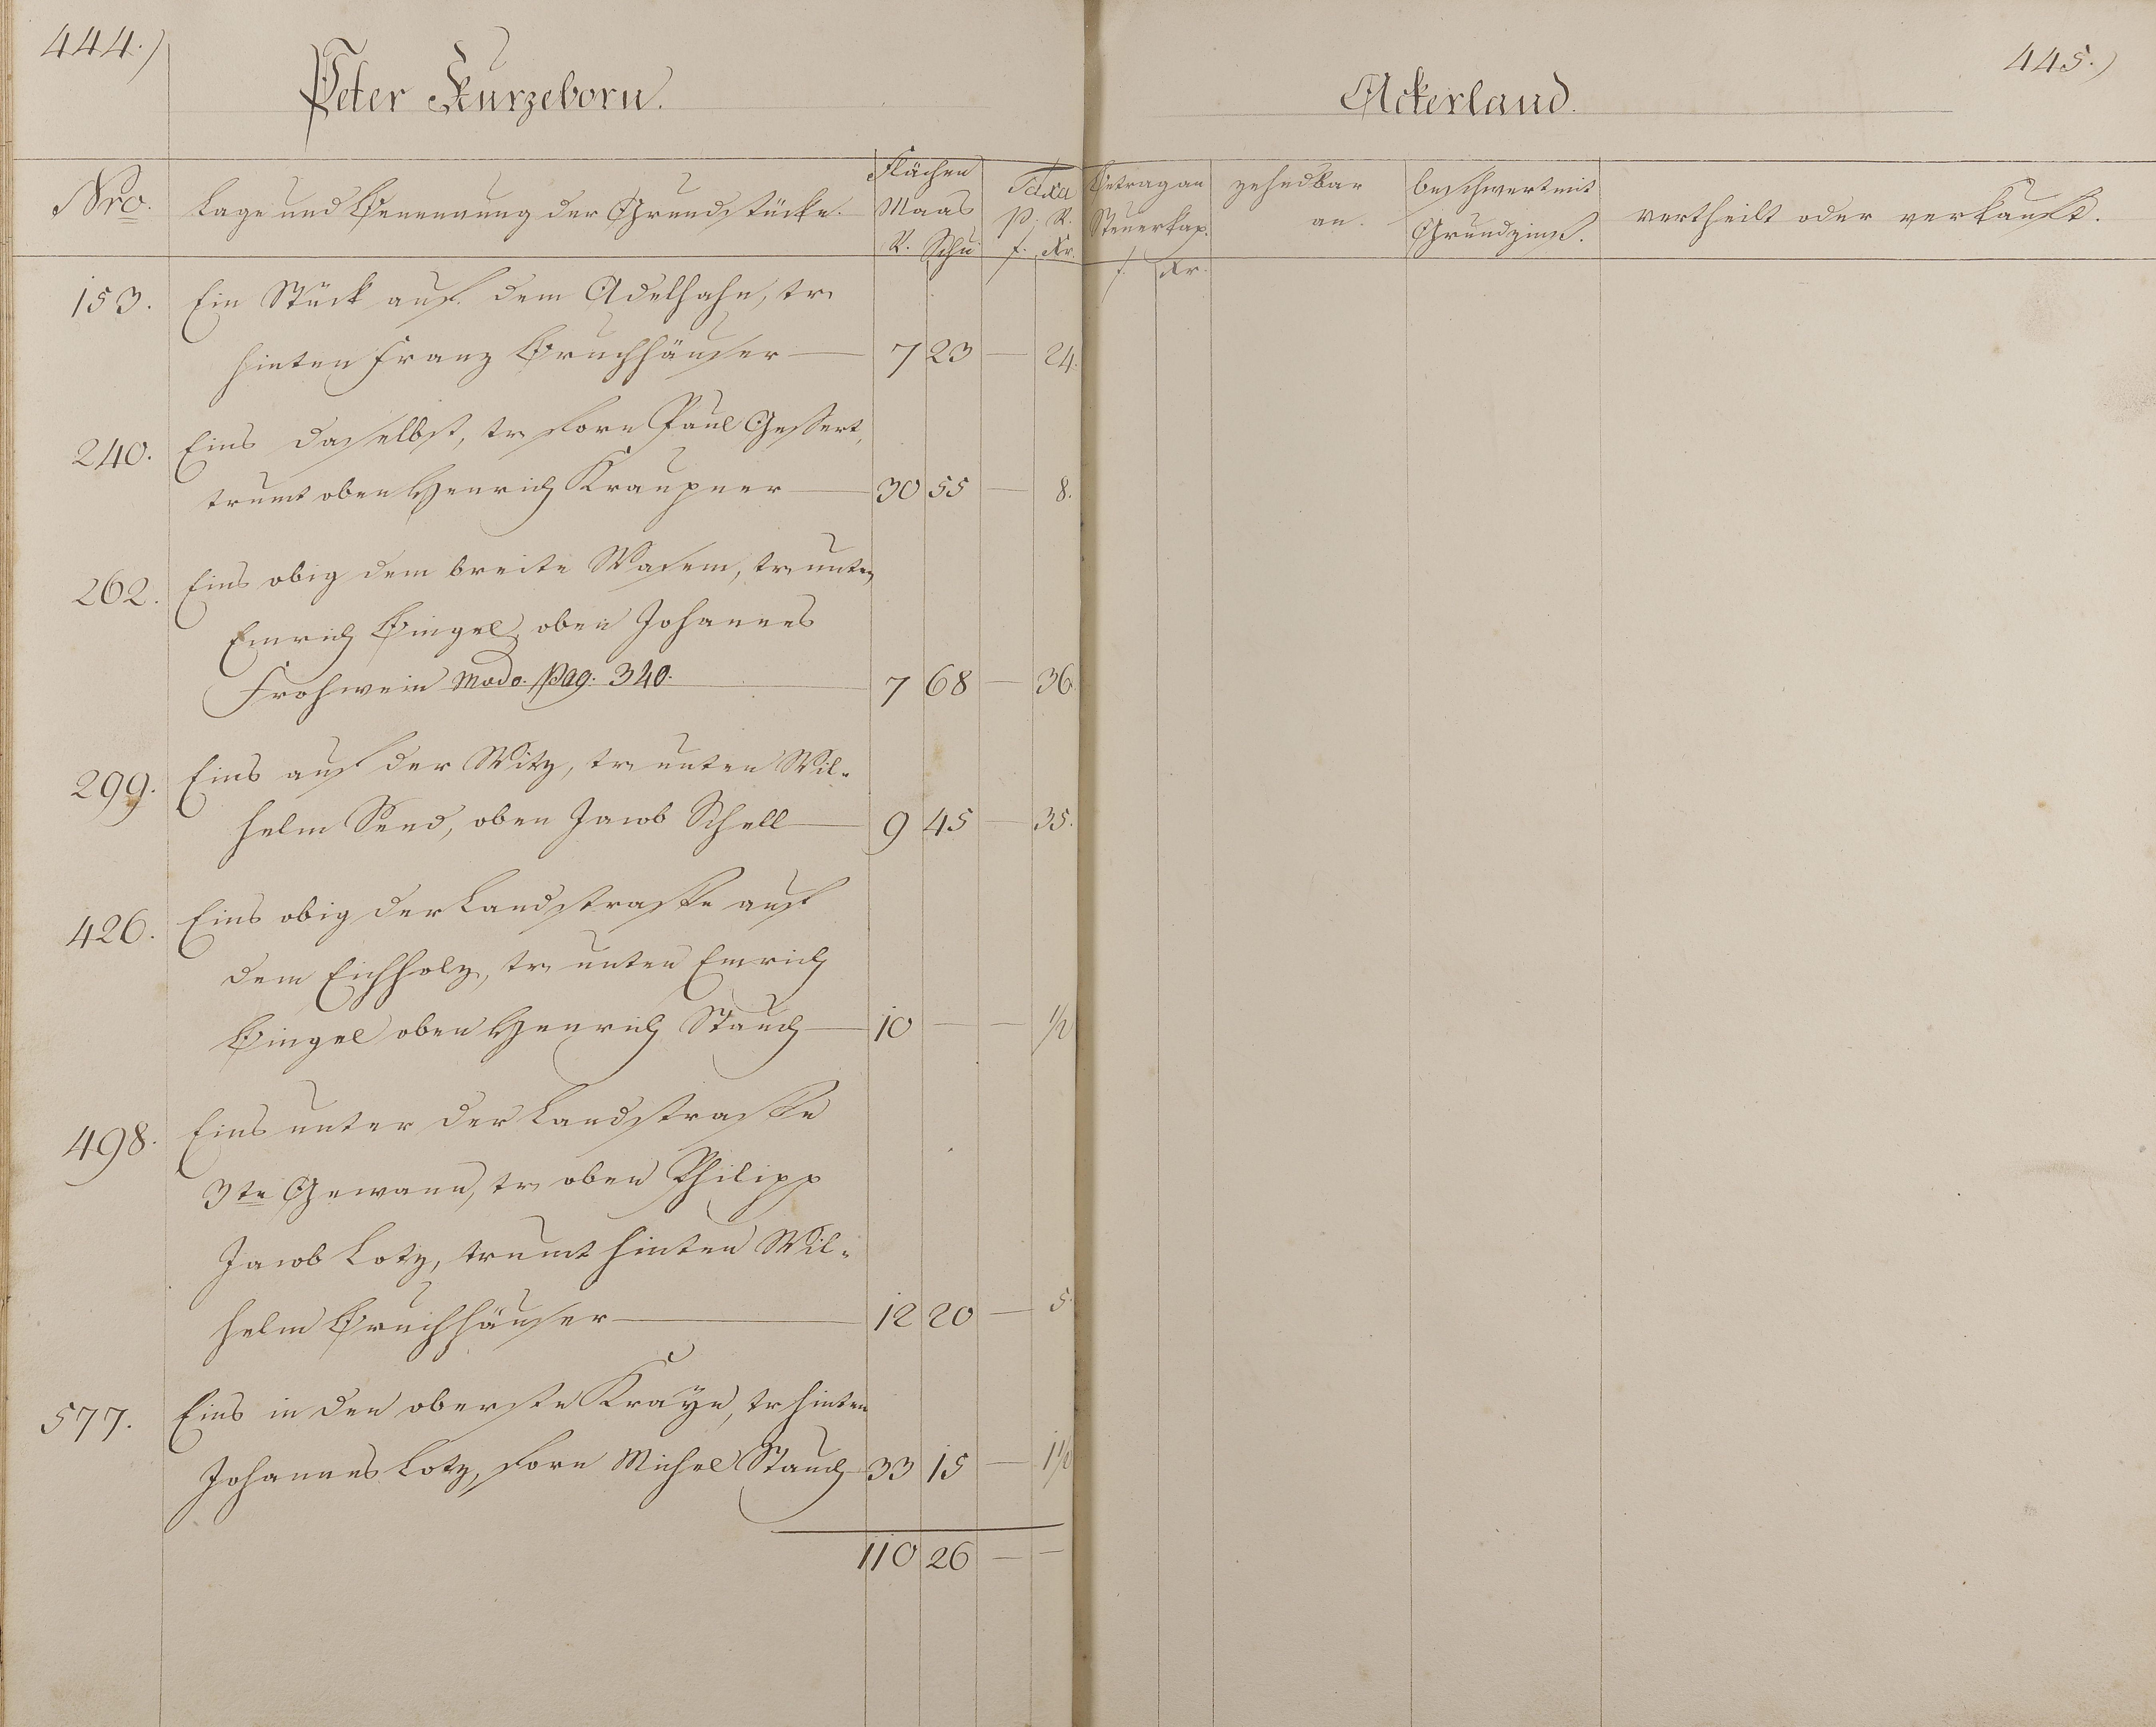 444.)
Peter Kurzeborn.
Nro. Lage und Benennung der Grundstücke. Flächen Maas R. Schu Taxa p. R. f. Kr.
153. Ein Stück auf dem Adelhahn, tr.
hinten Franz Bruchhäuser — 7 23 — 24.
240. Eins daselbst, tr. forn Paul Gessert,
trumt oben Henrich Kraupner — 30 55 — 8.
262. Eins obig dem breite Wasem, tr. unten
Emrich Bingel, oben Johannes
Frohwein modo. pag. 340. — 7 68 — 36
299. Eins auf der Witz, tr. unten Wil-
helm Send, oben Jacob Schell — 9 45 — 35.
426. Eins obig der Landstrasse auf
dem Eichholz, tr. unten Emrich
Bingel oben Henrich Stauch — 10 — — 1/2
498. Eins unter der Landstrasse
3te Gewann, tr. oben Philipp
Jacob Lotz, trumt hinten Wil-
helm Bruchhäuser — 12 20 — 5.
577. Eins in den oberste Kraÿe, tr. hinten
Johannes Lotz, forn Michel Stauch 33 15 — 1 1/2
110 26 — —
445.)
Ackerland.
Betrag an Steuerkap. f. Kr. zehndbar an. beschwert mit Grundzins. vertheilt oder verkauft.